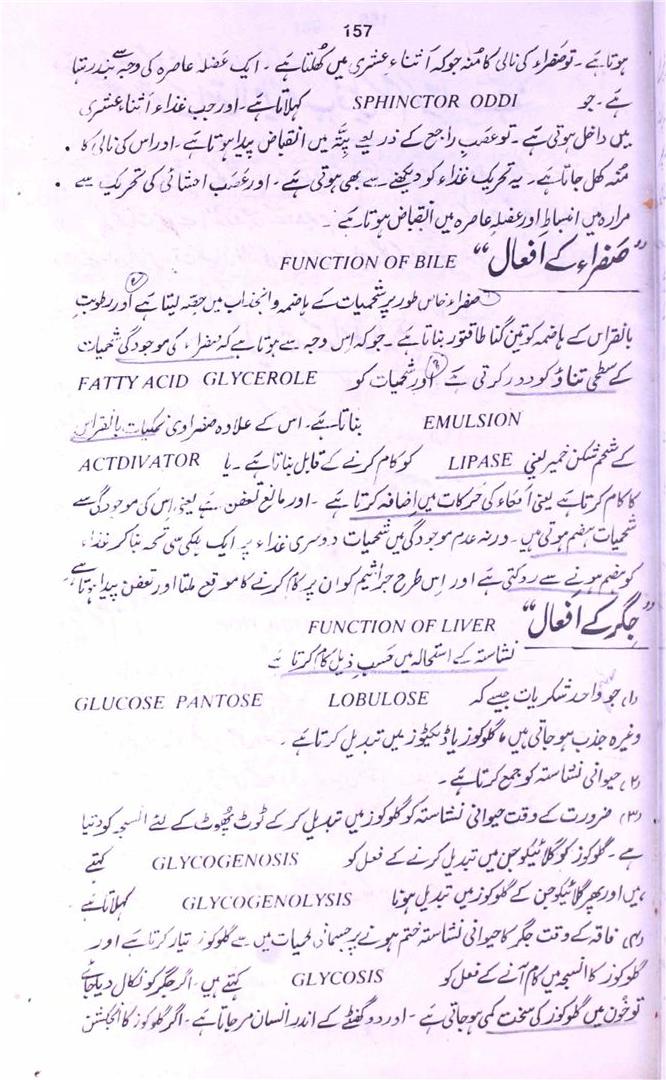 157
ہوتا ہے۔ تو صفراء کی نالی کا منہ جو کہ اثناء عشری میں کھلتا ہے۔ ایک عضلہ عاصرہ کی وجہ سے بند رہتا
ہے۔ جو SPHINCTOR ODDI کہلاتا ہے۔ اور جب غذاء اثناء عشری
میں داخل ہوتی ہے۔ تو عصبِ راجع کے ذریعے پتّہ میں انقباض پیدا ہوتا ہے۔ اور اس کی نالی کا
منہ کھل جاتا ہے۔ یہ تحریک غذاء کو دیکھنے سے بھی ہوتی ہے۔ اور عصَب احشائی کی تحریک سے
مرارہ میں انبساط اور عضلہ عاصرہ میں انقباض ہوتا ہے۔
”صَفراء کے اَفعال“ FUNCTION OF BILE
صفراء خاص طور پر شحمیات کے ہاضمہ و انجذاب میں حصّہ لیتا ہے اور رطوبتِ
بانقراس کے ہاضمہ کو تین گنا طاقتور بناتا ہے۔ جو کہ اس وجہ سے ہوتا ہے کہ صفراء کی موجودگی شحمیات
کے سطحی تناؤ کو دور کرتی ہے اور شحمیات کو FATTY ACID GLYCEROLE
EMULSION بناتا ہے۔ اس کے علاوہ صفراوی نمکیات بانقراس
کے شحم شکن خمیر یعنی LIPASE کو کام کرنے کے قابل بناتا ہے۔ یا ACTDIVATOR
کا کام کرتا ہے یعنی اَمعاء کی حرکات میں اضافہ کرتا ہے۔ اور مانع تعفن ہے یعنی اس کی موجودگی سے
شحمیات ہضم ہوتی ہیں۔ ورنہ عدم موجودگی میں شحمیات دوسری غذاء پر ایک ہلکی سی تہہ بنا کر غذاء
کو ہضم ہونے سے روکتی ہے اور اس طرح جراثیم کو ان پر کام کرنے کا موقع ملتا اور تعفن پیدا ہوتا ہے۔
”جگر کے اَفعال“ FUNCTION OF LIVER
نشاستہ کے استحالہ میں حسبِ ذیل کام کرتا ہے
(۱) جو واحد شکریات جیسے کہ GLUCOSE PANTOSE LOBULOSE
وغیرہ جذب ہو جاتی ہیں، گلوکوز یا میں تبدیل کرتا ہے۔
(۲) حیوانی نشاستہ کو جمع کرتا ہے۔
(۳) ضرورت کے وقت حیوانی نشاستہ کو گلوکوز میں تبدیل کر کے ٹوٹ پھوٹ کے لئے انسجہ کو دیتا
ہے۔ گلوکوز کو گلائیکوجن میں تبدیل کرنے کے فعل کو GLYCOGENOSIS کہتے
ہیں اور پھر گلائیکوجن کے گلوکوز میں تبدیل ہونا GLYCOGENOLYSIS کہلاتا ہے
(۴) فاقہ کے وقت جگر کا حیوانی نشاستہ ختم ہونے پر جسمانی لحمیات میں سے گلوکوز تیار کرتا ہے اور
گلوکوز کا انسجہ میں کام آنے کے فعل کو GLYCOSIS کہتے ہیں۔ اگر جگر کو نکال دیا جائے
تو خُون میں گلوکوز کی سخت کمی ہو جاتی ہے۔ اور دو گھنٹے کے اندر انسان مر جاتا ہے۔ اگر گلوکوز کا انجکشن